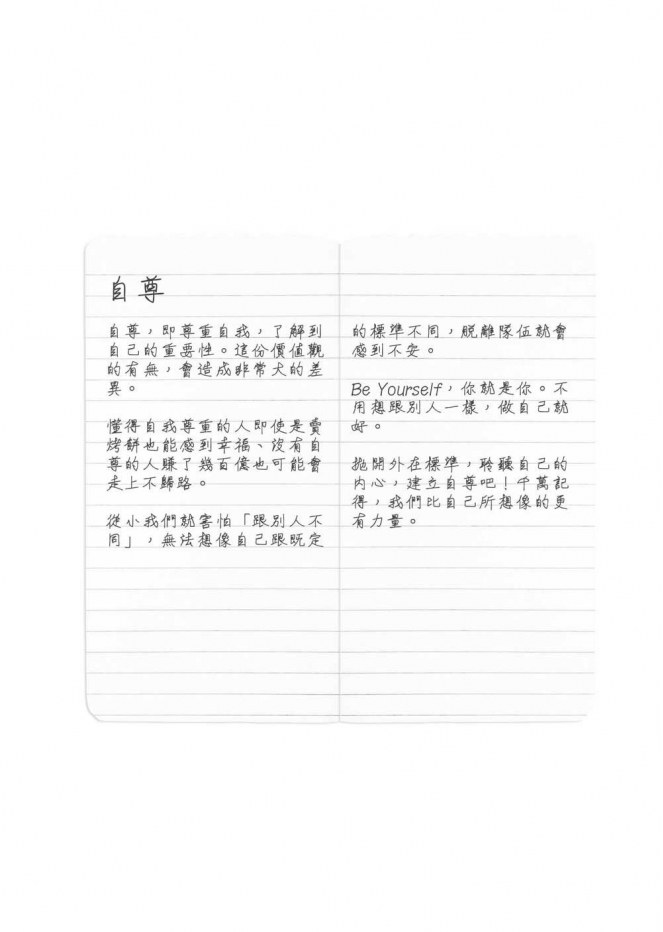 自尊
自尊，即尊重自我，了解到
自己的重要性。這份價值觀
的有無，會造成非常大的差
異。
懂得自我尊重的人即使是賣
烤餅也能感到幸福、沒有自
尊的人賺了幾百億也可能會
走上不歸路。
從小我們就害怕「跟別人不
同」，無法想像自己跟既定
的標準不同，脫離隊伍就會
感到不安。
Be Yourself，你就是你。不
用想跟別人一樣，做自己就
好。
拋開外在標準，聆聽自己的
內心，建立自尊吧！千萬記
得，我們比自己所想像的更
有力量。